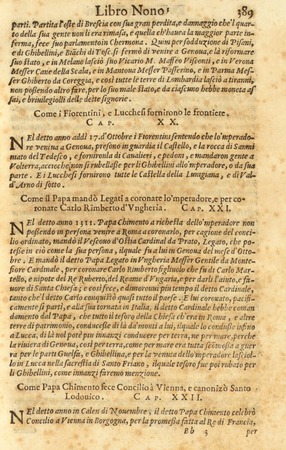 Libro Nono 389
parti. Partita l'oste di Brescia con sua gran perdita, e dannaggio che'l quar-
to della sua gente non li era rimasa, e quella ch'hauea la maggior parte in-
ferma, fece suo parlamento in Chermona. Quiui per sodduttion di Pisani,
e di Ghibellini, e Bãchi di Tosca si fermò di venire a Genoua, e là riformare
suo Stato, e in Melano lasciò suo Vicario M. Maffeo Visconti, e in Verona
Messer Cane della Scala, e in Mantoua Messer Passerino, e in Parma Mes-
ser Ghiberto da Coreggia, e così tutte le terre di Lombardia lasciò a tiranni,
non possendo altro fare, per lo suo male stato, e da ciascuno hebbe moneta as-
sai, e briuilegiolli delle dette signorie.
Come i Fiorentini, e Lucchesi fornirono le frontiere.
Cap. XX.
NEl detto anno addì 17. d'Ottobre i Fiorentini sentendo che lo'mperado-
re venìa a Genoua, presono in guardia il Castello, e la rocca di Sanmi-
nato del Tedesco, e fornironla di Caualieri, e pedoni, e mandarono gente a
Volterra, acciochè non si rubellasse per li Ghibellini allo'mperadore, o da sua
parte. E i Lucchesi fornirono tutte le Castella della Lunigiana, e di Val-
d'Arno di sotto.
Come il Papa mandò Legati a coronare lo'mperadore, e per co-
ronare Carlo Rimberto d'Vngheria. Cap. XXI.
NEl detto anno 1311. Papa Chimento a richiesta dello'mperadore non
possendo in persona venire a Roma a coronarlo, per cagione del conci-
lio ordinato, mandò il Vescouo d'Ostia Cardinal da Prato, Legato, che po-
tesse in ciò come la sua persona, ilquale fu a lui in Genoua del mese d'Otto-
bre. E mandò il detto Papa Legato in Vngheria Messer Gentile di Monte-
fiore Cardinale, per coronare Carlo Rimberto figliuolo che fu di Carlo Mar-
tello, e nipote del Re Ruberto, del Reame d'Vngaria, e per darli l'aiuto, e fa-
uore di Santa Chiesa, e così fece, e dimorouui più tempo il detto Cardinale,
tanto che'l detto Carlo conquistò quasi tutto il paese. E lui coronato, paci-
ficamente li partì, e alla sua tornata in Italia, il detto Cardinale hebbe coman-
damento dal Papa, che tutto il tesoro della Chiesa ch'era in Roma, e altre
terre di patrimonio, conducesse di là da'monti a lui, ilquale lo condusse infino
a Lucca, di là nol potè più innanzi conducere per terra, nè per mare, perchè
la riuiera di Genoua, così per terra, come per mare era tutta scommossa a guer-
ra per le parti Guelfa, e Ghibellina, e per la venuta dello'mperadore lasciol-
lo in Lucca nella sacrestia di Santo Friano, ilquale tesoro fue poi rubato per
li Ghibellini, come innanzi faremo menzione.
Come Papa Chimento fece Concilio à Vienna, e canonizò Santo
Lodouico. Cap. XXII.
NEl detto anno in Calen di Nouembre, il detto Papa Chimento celebrò
Concilio a Vienna in Borgogna, per la promessa fatta al Re di Francia,
Bb 3 per